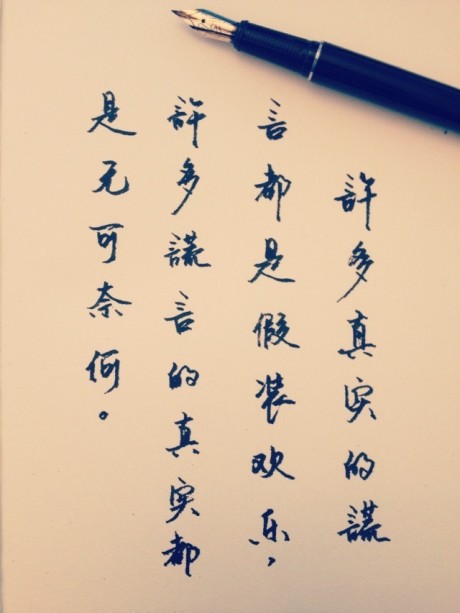 許多真实的謊
言都是假装欢乐，
許多謊言的真实都
是无可奈何。